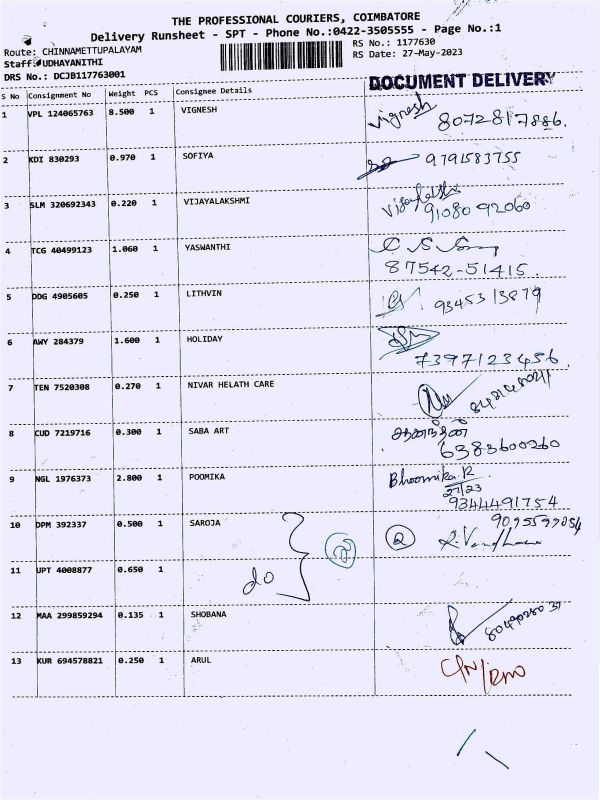 THE PROFESSIONAL COURIERS, COIMBATORE
Delivery Runsheet - SPT - Phone No.:0422-3505555 - Page No.:1
Route: CHINNAMETTUPALAYAM
RS No.: 1177630
Staff: UDHAYANITHI
RS Date: 27-May-2023
DRS No.: DCJB117763001
DOCUMENT DELIVERY
S No Consignment No Weight PCS Consignee Details
1 VPL 124065763 8.500 1 VIGNESH Vignesh
8072817886.
2 KDI 830293 0.970 1 SOFIYA 9791583755
3 SLM 320692343 0.220 1 VIJAYALAKSHMI
91080 92060
4 TCG 40499123 1.060 1 YASWANTHI
87542-51415.
5 DDG 4905605 0.250 1 LITHVIN 9345313879
6 AWY 284379 1.600 1 HOLIDAY
7397123456
7 TEN 7520308 0.270 1 NIVAR HELATH CARE
8 CUD 7219716 0.300 1 SABA ART
6383600260
9 NGL 1976373 2.800 1 POOMIKA Bhoomika.R
27/23
9344491754
10 DPM 392337 0.500 1 SAROJA
2
11 UPT 4008877 0.650 1
do
12 MAA 299859294 0.135 1 SHOBANA
13 KUR 694578821 0.250 1 ARUL